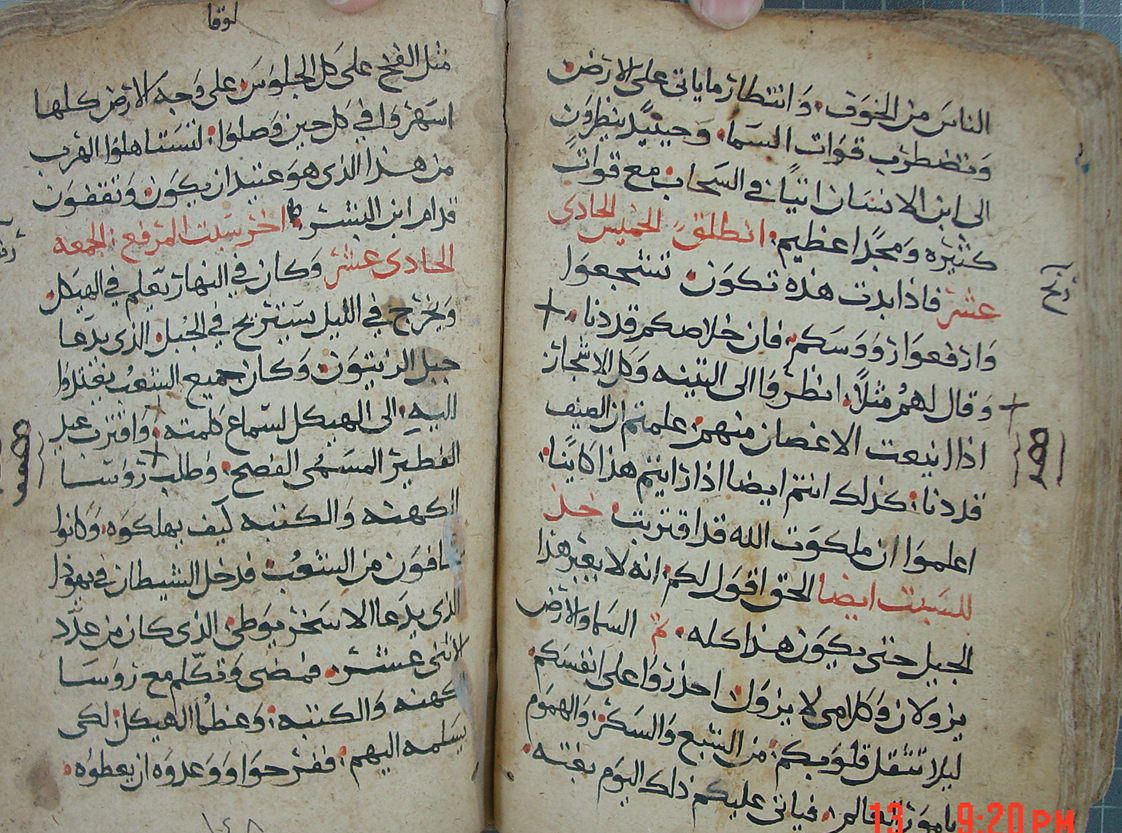 الناس من الخوف، وانتظار ماياتى على الارض
وتضطرب قوات السما، وحينيد ينظرون
الى ابن الانسان اتيًا فى السحاب مع قوات
كثيره ومجدًا عظيم: انطلق الخميس الحادى
عشر فاذا بدت هذه تكون، تشجعوا
وارفعوا رووسكم، فان خلاصكم قد دنا،
وقال لهم مثلًا، انظروا الى التينه وكل الاشجار
اذا اينعت الاغصان منهم، علمتم ان الصيف
قد دنا: كذلك انتم ايضا اذا رايتم هذا كاينًا،
اعلموا ان ملكوت الله قد اقتربت،
للسبت ايضا الحق اقول لكم، انه لا يعبر هذا
الجيل حتى يكون هذا كله، السما والارض
يزولان وكلامى لا يزول، احذروا على انفسكم
ليلا تثقل قلوبكم، من الشبع والسكر، والهموم
فياتى عليكم ذلك اليوم بغته،
لوقا
مثل الفخ على كل الجلوس، على وجه الارض كلها
اسهروا فى كل حين وصلوا، لتستاهلوا الهرب
من هذا الذى هو عتيد ان يكون، وتقفون
قدام ابن البشر، اخر سبت المرفع: الجمعه
الحادى عشر وكان فى النهار يعلم فى الهيكل
ويخرج فى الليل يستريح فى الجبل الذى يدعا
جبل الزيتون، وكان جميع الشعب يغتدوا
اليه، الى الهيكل لسماع كلمته، واقترب عيد
الفطير المسمى الفصح، وطلب روسا
الكهنه والكتبه كيف يهلكوه، وكانوا
يخافون من الشعب، فدخل الشيطان فى يهوذا
الذى يدعا الاسخريوطى، الذى كان من عدد
الاثنى عشر، فمضى وتكلم مع روسا
الكهنه والكتبه، وعظما الهيكل، لكى
يسلمه اليهم، ففرحوا ووعدوه ان يعطوه،
13 9:20 PM